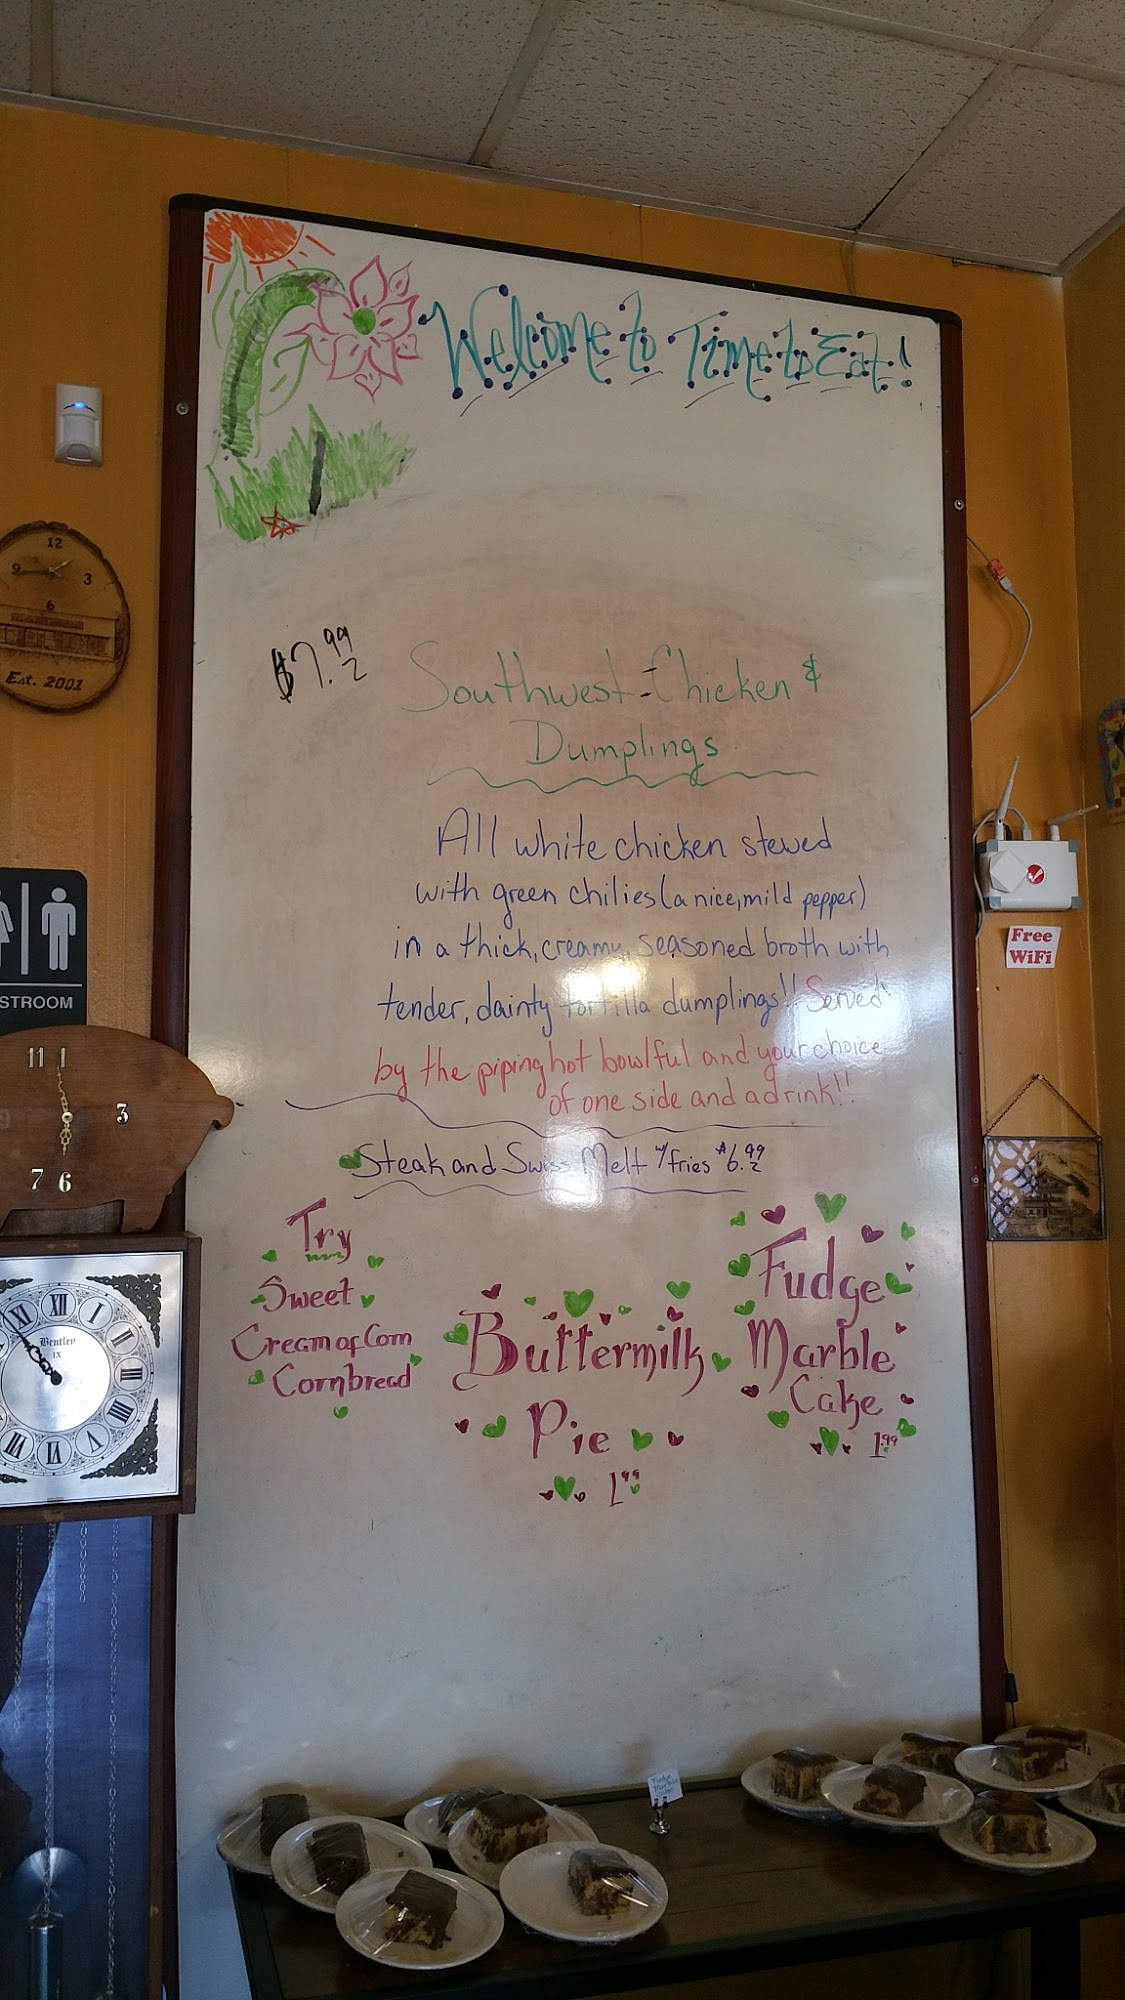 Welcome to Time to Eat!
12
9
3
6
Est. 2001
$7.99
Southwest-Chicken &
Dumplings
All white chicken stewed
with green chilies (a nice, mild pepper)
in a thick, creamy, seasoned broth with
tender, dainty tortilla dumplings!! Served
by the piping hot bowlful and your choice
of one side and a drink!!
Steak and Swiss Melt w/fries $6.99
Try
Sweet
Cream of Corn
Cornbread
Buttermilk
Pie
1.99
Fudge
Marble
Cake
1.99
Free
WiFi
STROOM
11 1
3
7 6
XI XII I II III IIII V VI VII
Bentley
IX
Fudge
Marble
Cake